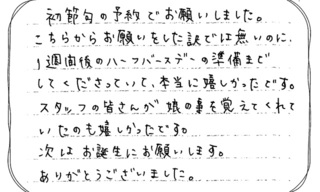 初節句の予約でお願いしました。
こちらからお願いをした訳では無いのに、
1週間後のハーフバースデーの準備まで
してくださっていて、本当に嬉しかったです。
スタッフの皆さんが娘の事を覚えてくれて
いたのも嬉しかったです。
次はお誕生にお願いします。
ありがとうございました。